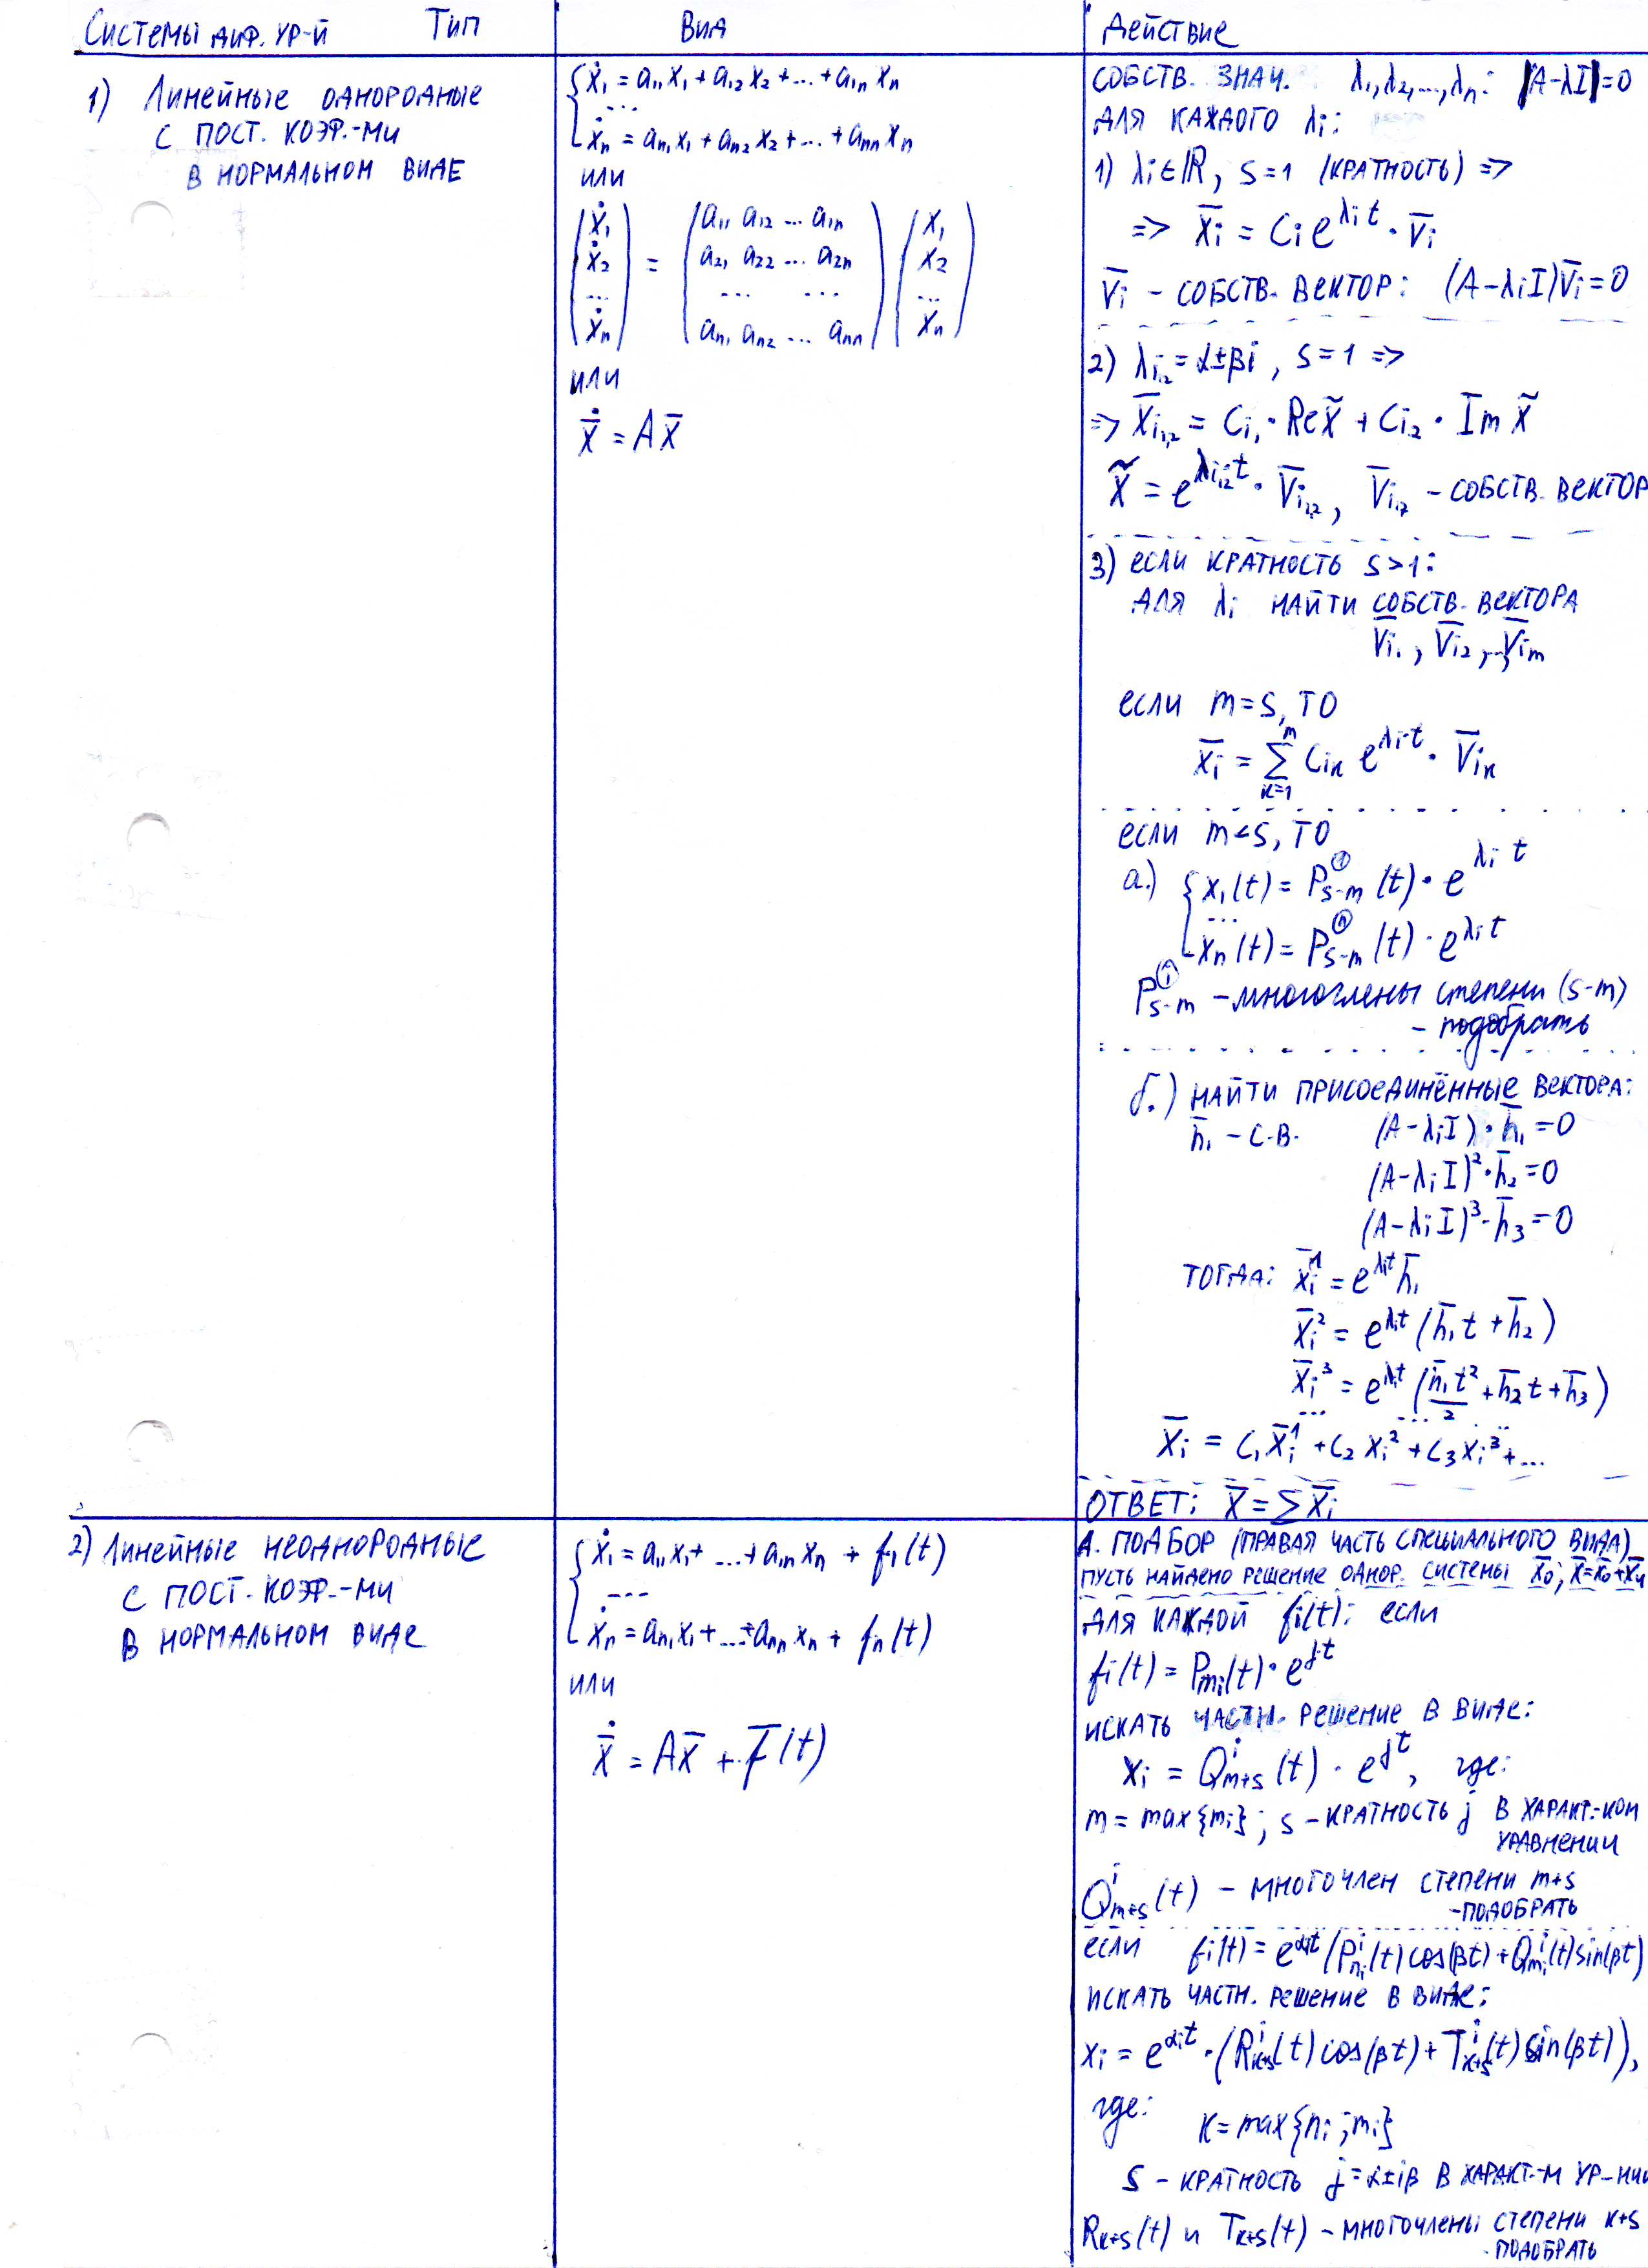 Системы диф. ур-й Тип Вид Действие
1) Линейные однородные
с пост. коэф.-ми
в нормальном виде
{ẋ₁ = a₁₁x₁ + a₁₂x₂ + ... + a₁ₙxₙ
...
ẋₙ = aₙ₁x₁ + aₙ₂x₂ + ... + aₙₙxₙ
или
(ẋ₁) = (a₁₁ a₁₂ ... a₁ₙ) (x₁)
(ẋ₂) (a₂₁ a₂₂ ... a₂ₙ) (x₂)
(...) (... ...) (...)
(ẋₙ) (aₙ₁ aₙ₂ ... aₙₙ) (xₙ)
или
ẋ̄ = Ax̄
собств. знач. λ₁, λ₂, ..., λₙ: |A-λI|=0
для каждого λᵢ:
1) λᵢ∈ℝ, s=1 (кратность) =>
=> x̄ᵢ = Cᵢe^{λᵢt}·v̄ᵢ
v̄ᵢ - собств. вектор: (A-λᵢI)v̄ᵢ=0
2) λᵢ₁,₂ = α±βi, s=1 =>
=> x̄ᵢ₁,₂ = Cᵢ₁·Re x̃ + Cᵢ₂·Im x̃
x̃ = e^{λᵢ₁,₂t}·v̄ᵢ₁,₂, v̄ᵢ₁,₂ - собств. вектор
3) если кратность s>1:
для λᵢ найти собств. вектора
v̄ᵢ₁, v̄ᵢ₂, ..., v̄ᵢₘ
если m=s, то
x̄ᵢ = ∑_{k=1}^{m} Cᵢₖ e^{λᵢt}·v̄ᵢₖ
если m<s, то
а.) {x₁(t) = P^{①}_{s-m}(t)·e^{λᵢt}
...
xₙ(t) = P^{ⓝ}_{s-m}(t)·e^{λᵢt}
P^{ⓘ}_{s-m} - многочлены степени (s-m)
- подобрать
б.) найти присоединённые вектора:
h̄₁ - с.в. (A-λᵢI)·h̄₁=0
(A-λᵢI)²·h̄₂=0
(A-λᵢI)³·h̄₃=0
тогда: x̄ᵢ¹ = e^{λᵢt}h̄₁
x̄ᵢ² = e^{λᵢt}(h̄₁t + h̄₂)
x̄ᵢ³ = e^{λᵢt}(h̄₁t²/2 + h̄₂t + h̄₃)
... ... ...
x̄ᵢ = C₁x̄ᵢ¹ + C₂xᵢ² + C₃xᵢ³ + ...
Ответ: x̄ = ∑x̄ᵢ
2) Линейные неоднородные
с пост. коэф.-ми
в нормальном виде
{ẋ₁ = a₁₁x₁ + ... + a₁ₙxₙ + f₁(t)
...
ẋₙ = aₙ₁x₁ + ... + aₙₙxₙ + fₙ(t)
или
ẋ̄ = Ax̄ + F̄(t)
А. Подбор (правая часть специального вида)
пусть найдено решение однор. системы x̄₀; x̄=x̄₀+x̄ч
для каждой fᵢ(t): если
fᵢ(t) = P_{mᵢ}(t)·e^{jt}
искать частн. решение в виде:
xᵢ = Q^{i}_{m+s}(t)·e^{jt}, где:
m = max{mᵢ}; s - кратность j в характ.-ком
уравнении
Q^{i}_{m+s}(t) - многочлен степени m+s
- подобрать
если fᵢ(t) = e^{αᵢt}(P^{i}_{nᵢ}(t)cos(βt) + Q^{i}_{mᵢ}(t)sin(βt)
искать частн. решение в виде:
xᵢ = e^{αᵢt}·(R^{i}_{k+s}(t)cos(βt) + T^{i}_{k+s}(t)sin(βt)),
где: k = max{nᵢ; mᵢ}
s - кратность j=α±iβ в характ.-м ур-нии
R_{k+s}(t) и T_{k+s}(t) - многочлены степени k+s
- подобрать